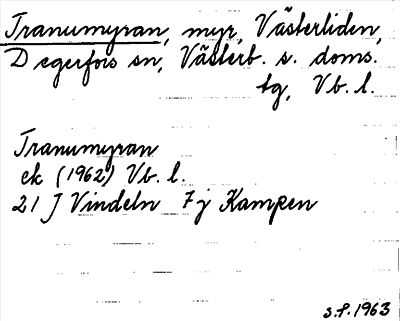 Tranumyran, myr, Västerliden,
Degerfors sn, Västerb. s. doms.
tg, Vb. l.
Tranumyran
ek (1962) Vb. l.
21 J Vindeln 7 j Kampen
s.f. 1963